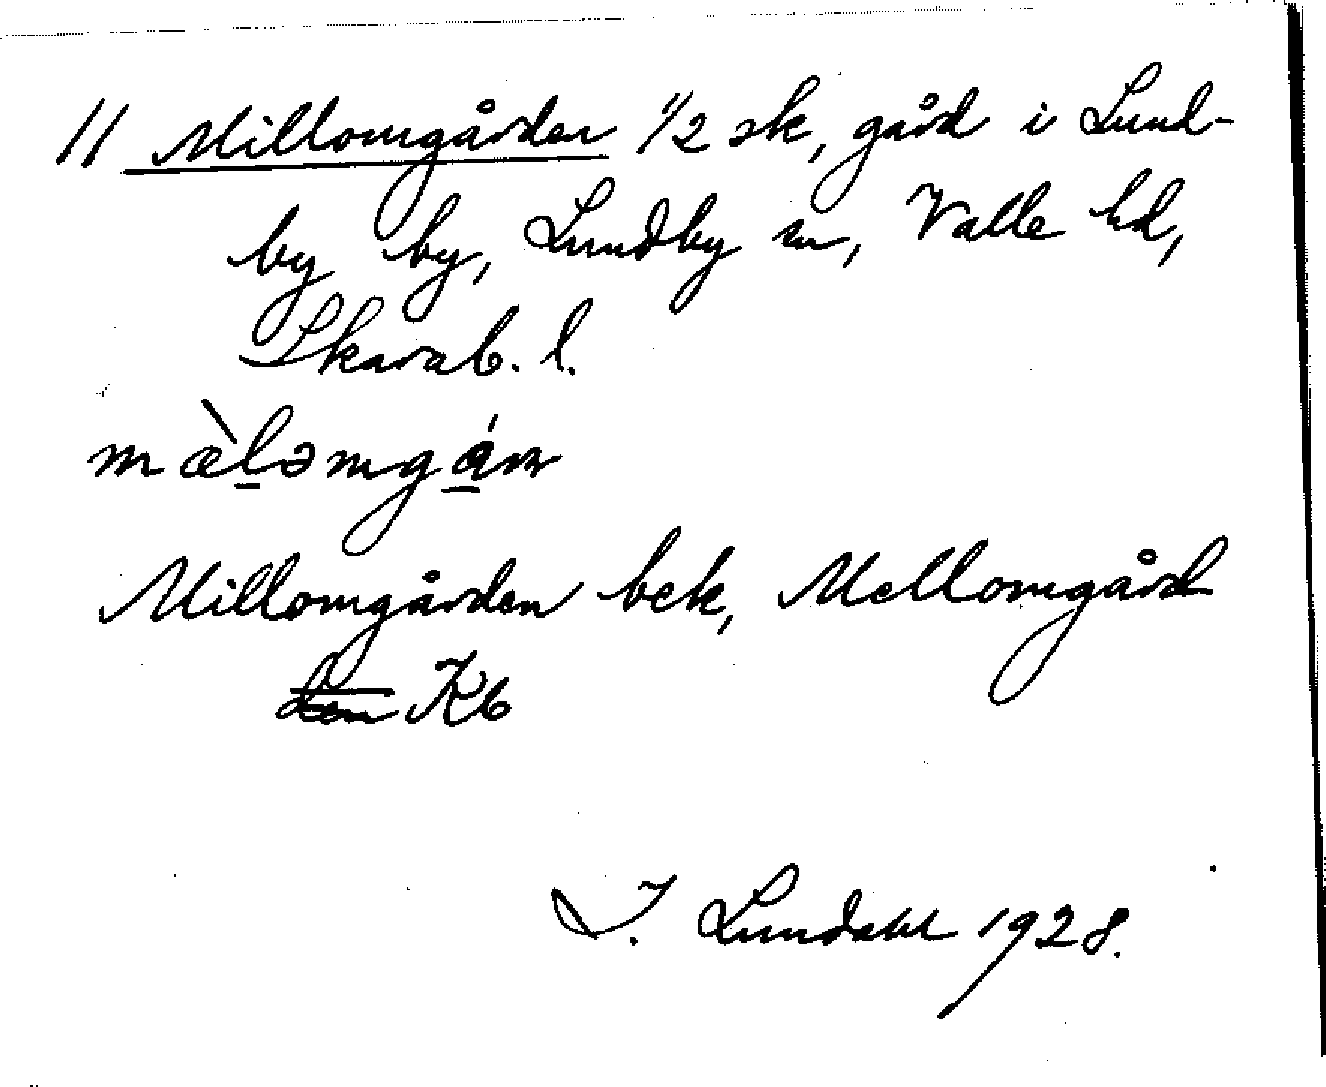 11 Millomgården 1/2 sk, gård i Lund-
by by, Lundby sn, Valle hd,
Skarab. l.
mæ̀lǝmgáɳ
Millomgården bek, Mellomgård
Kb
I. Lundahl 1928.